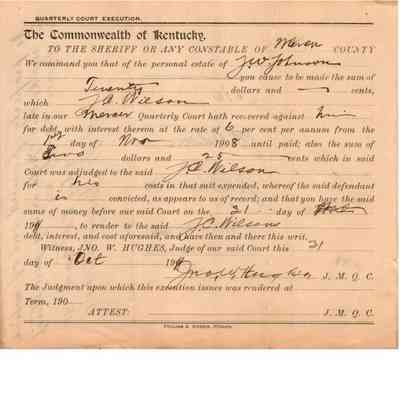 QUARTERLY COURT EXECUTION.
The Commonwealth of Kentucky,
TO THE SHERIFF OR ANY CONSTABLE OF Mercer COUNTY
We command you that of the personal estate of J W Johnson
you cause to be made the sum of
Twenty dollars and — cents,
which J C Wilson
late in our Mercer Quarterly Court hath recovered against him
for debt with interest thereon at the rate of 6 per cent per annum from the
1st day of Nov 1908 until paid; also the sum of
Two dollars and 25 cents which in said
Court was adjudged to the said J C Wilson
for his costs in that suit expended, whereof the said defendant
is convicted, as appears to us of record; and that you have the said
sums of money before our said Court on the 21 day of
190, to render to the said J. C. Wilson
debt, interest, and cost aforesaid, and have then and there this writ.
Witness, JNO. W. HUGHES, Judge of our said Court this 21
day of Oct 190
Jno W Hughes J. M. Q. C.
The Judgment upon which this execution issues was rendered at
Term, 190
ATTEST: J. M. Q. C.